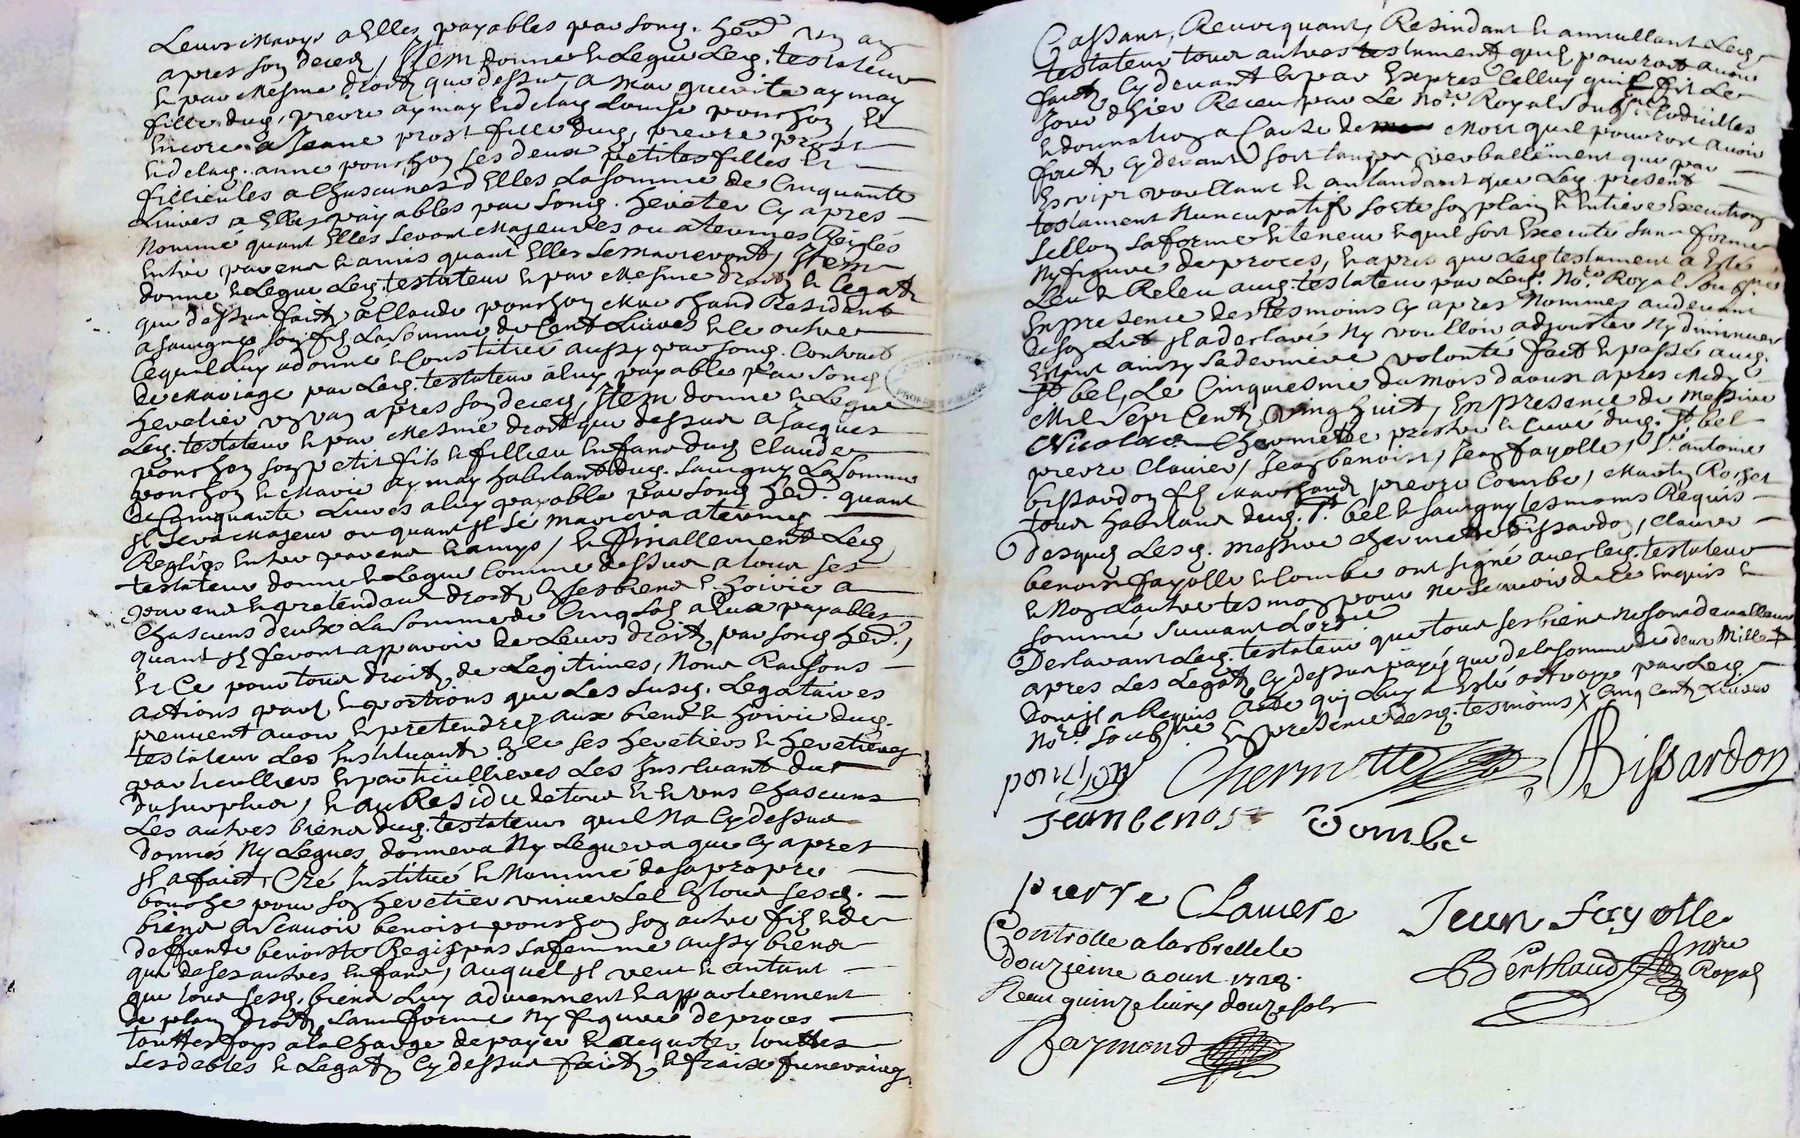 Leurs Marys a Elles payables par sond. herd. un an
apres son deces, Item donne & Legue Led. testateur
& par Mesme droitz que dessus, a Marguerite aymay
fille dud. pierre aymay & delad. Louise ponchon &
Encore a Jeanne prost fille dud. pierre prost
& delad. anne ponchon ses deux petites filles &
fillieules a Chascunes d'Elles La somme de Cinquante
Livres a Elles payables par sond. heretier Cy apres
Nommé quant Elles seront Majeures ou a termes Réglés
Entre parens & amis quant Elles se marieront, Item
donne & Legue Led. testateur & par Mesme droitz & Legatz
que dessus faitz a Claude ponchon Marchand Residant
a savigny son fils La somme de Cent Livres & ce outre
Ce quil Luy a donné & Constitué aussy par sond. Contract
de Mariage par Led. testateur a luy payable par sond.
heretier un an apres son deces, Item donne & Legue
Led. testateur & par Mesme droitz que dessus a Jacques
ponchon son petit fils & fillieu Enfans dud. Claude
ponchon & Marie aymay habitant aud. Savigny La somme
de Cinquante Livres a luy payable par sond. herd. quant
Jl sera Majeur ou quant Jl se mariera a termes
Reglés Entre parens & amys, & finallement Led.
testateur donne & Legue Comme dessus a tous ses
parens & pretendans droitz En ses biens & hoirie a
Chascuns d'eux La somme de Cinq sols a Eux payables
quant Jls feront apparoir de Leurs droitz par sond. herd.,
& Ce pour tous droitz de Legitimes, Noms Raisons
actions partz & portions que Les susd. Legataires
peuvent avoir & pretendres aux biens & hoirie dud.
testateur Les Instituant En ce ses heretiers & heretieres
particulliers & particullieres Les Excluant du
du surplus, & au Residu de tous & uns Chascuns
Les autres biens dud. testateur quil Na Cy dessus
donnés Ny Legués donnera Ny Leguera que Cy apres
Jl a fait, Créé Institué & Nommé de sa propre
bouche pour son heretier universel En tous sesd.
biens a Scavoir benoist ponchon son autre fils & de
deffunte benoiste Regipas sa femme aussy biens
que de ses autres Enfans, auquel Jl veut & Entant
que tous sesd. biens Luy adviennent & appartiennent
de plain droitz sans forme Ny figure de proces
touttes foys a la Charge de payer & acquiter touttes
ses debtes & Legatz Cy dessus faitz & fraix funeraires
Cassant, Revocquant, Resindant & annullant Led.
testateur tous autres testaments quil pourroit avoir
faitz Cy devant & par Expres Celluy quil fit Le
Jour d'hier Receu par Le Nore. Royal soubsné. Codicilles
& donnation a Cause de Mort quil pourroit avoir
fait Cy devant soit tant verballement que par
Escript voullant & antandant que Led. present
testament Nuncupatif sorte son plain & Entiere Execution
sellon sa forme & teneur & quil soit Executé sans forme
Ny figure de proces, & apres que Led. testament a Esté
Leu & Releu aud. testateur par Led. Nore. Royal Soubsné
En presence des tesmoins Cy apres Nommés au devant
de son Lict Jl a desclaré Ny voulloir adjouster Ny diminuer
Estant ainsy sa derniere volonté fait & passé aud.
St bel, Le Cinquiesme du mois d'aoust apres Midy
Mil sept Centz vingt huit, En presence de Messire
Nicolas Chermette prestre & Curé dud. St bel
pierre Clavier, Jean benoist, Jean fayolle, Sr. antoine
bissardon fils Marchand, pierre Combe, Martin Rochet
tous habitans dud. St. bel & savigny tesmoins Requis
Desquels Lesd. Messire Chermette Bissardon, Clavier
benoist fayolle & Combe ont signé avec Led. testateur
& Non L'autre tesmoin pour Ne scavoir de ce Enquis &
sommé suivant L'ordce
Desclarant Led. testateur que tous ses biens Ne sont de valleur
apres Les Legatz Cy dessus payés que de la somme de deux Mille
dont Jl a Requis Acte quil Luy a Esté octroyé par Led.
Nore. Soubsné En presence desd. tesmoins X Cinq Centz Livres
ponchon Chermette Bissardon
Jean benoist Combe
pierre Claviere Jean fayolle
Controllé a larbrelle le
douzieme aoust 1728.
Receu quinze livres douze sols
Berthaud nore Royal
Raymond